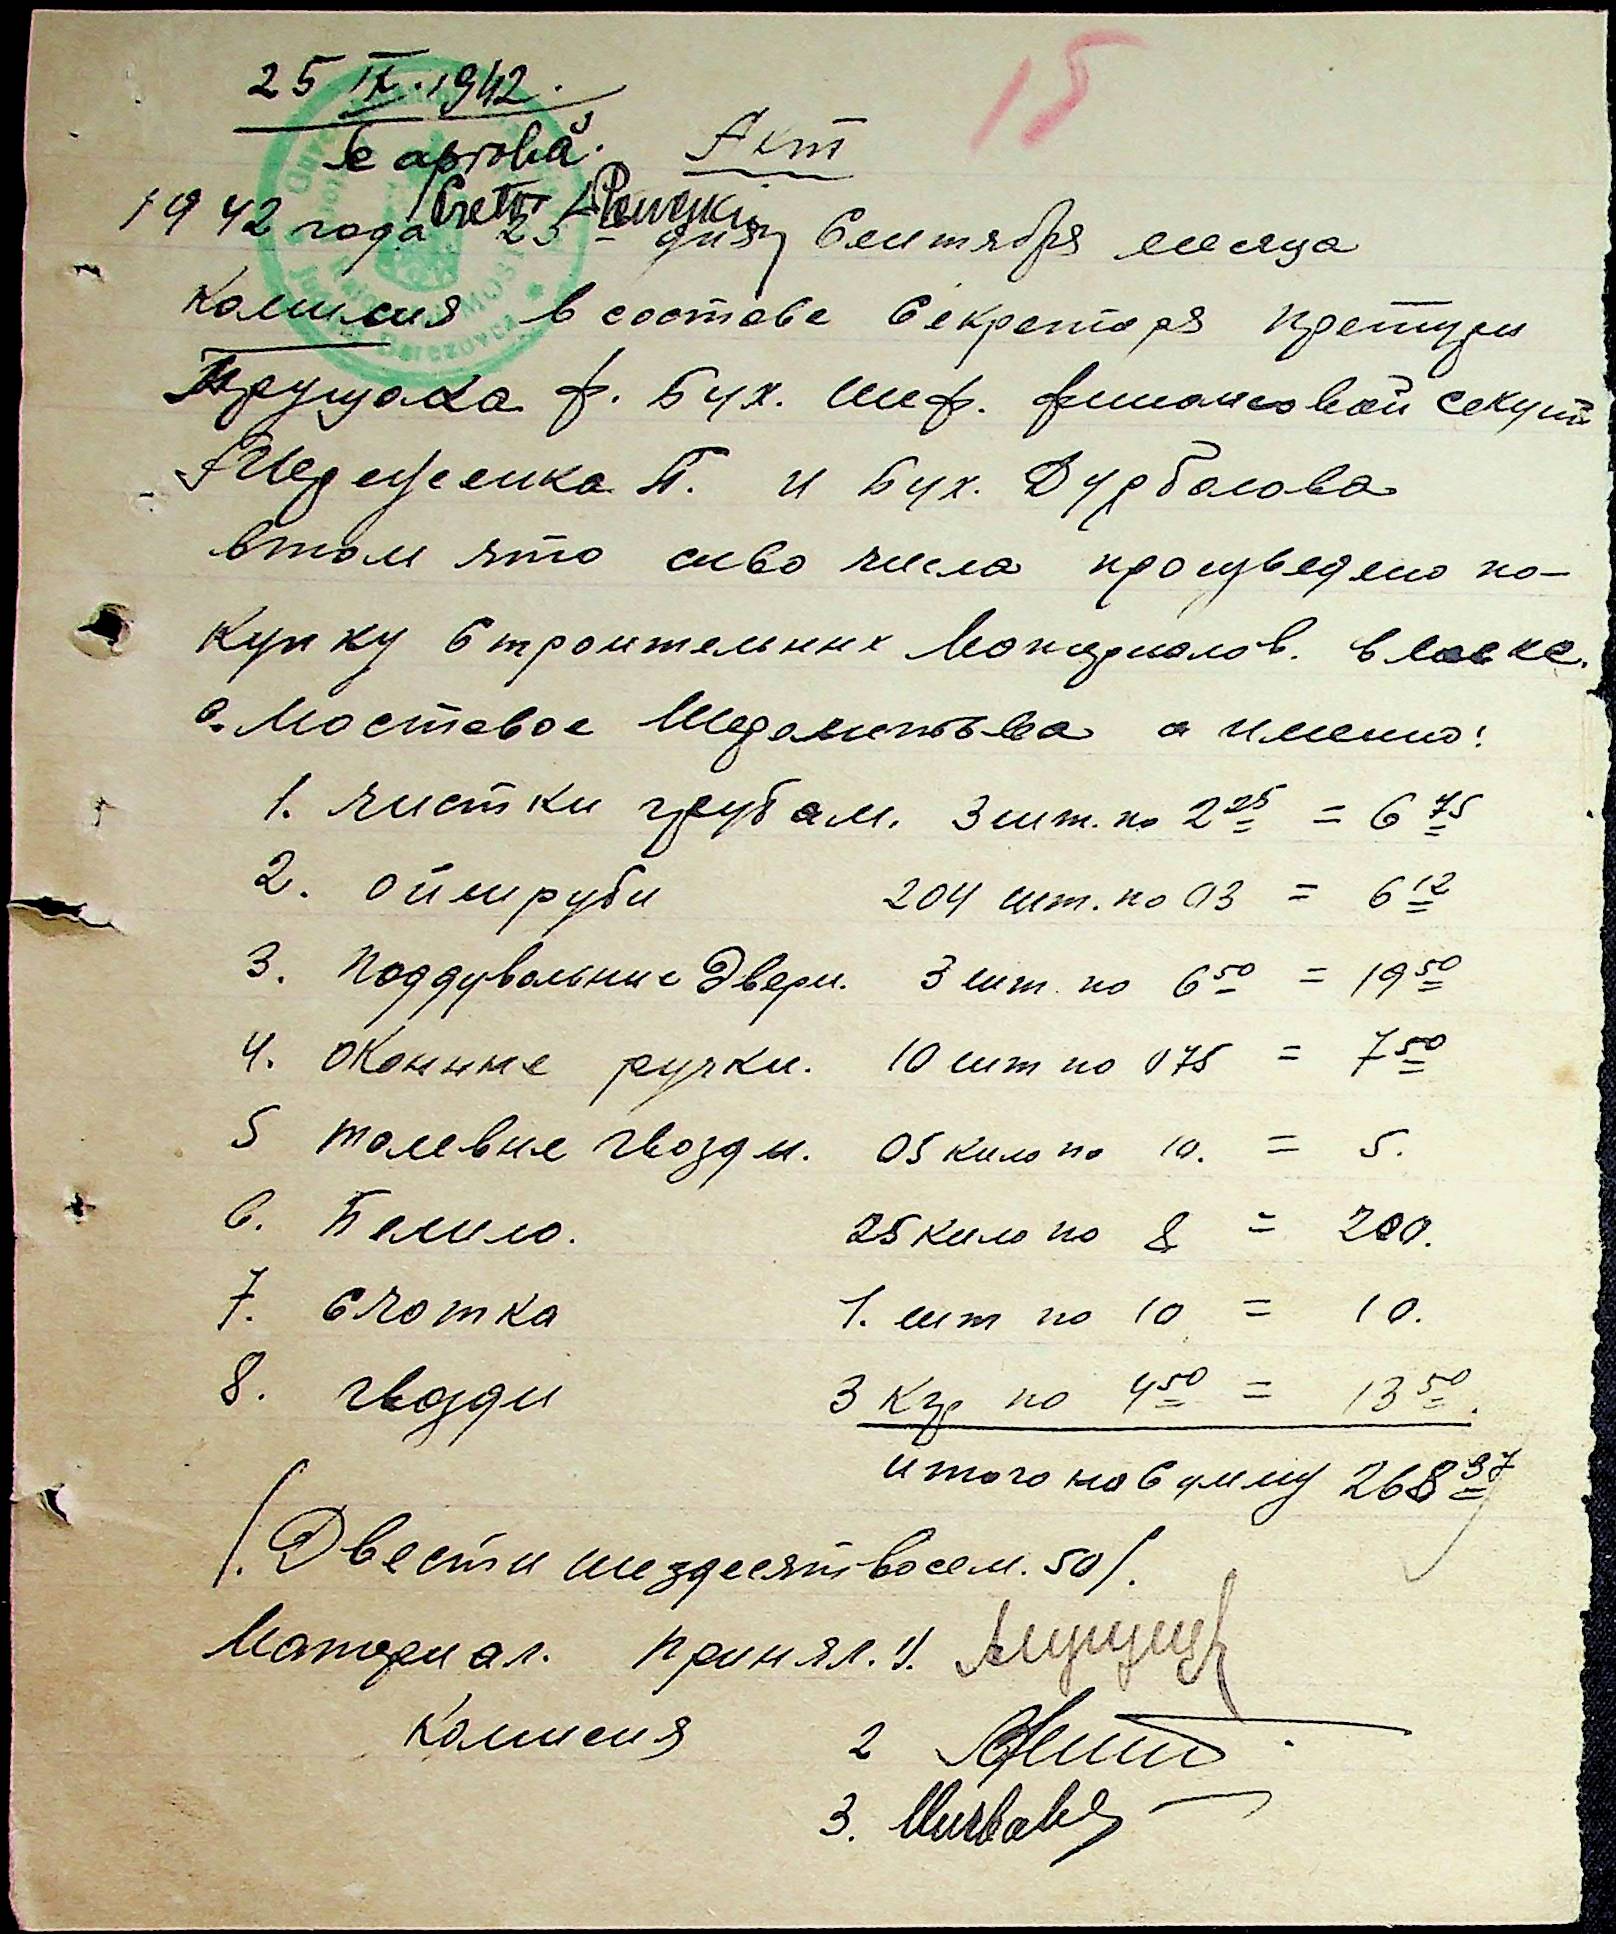 15
25 IX.1942.
Se aprobă.
Акт
Pretor
1942 года 25 дня Сентября месяца
Комисия в составе Секретаря претури
ф. Бух. финансовой секции
П. и Бух. Дурбалова
втом что сиво числа произведено по-
купку Строительних Матириалов. в лавке.
с. Мостовое а имено:
1. чистки трубам. 3 шт. по 2 25 = 6 75
2. 204 шт. по 03 = 6 12
3. Поддувальние Двери. 3 шт. по 6 50 = 19 50
4. Оконние ручки. 10 шт по 075 = 7 50
5 толевие гвозди. 05 кило по 10. = 5.
6. Белило. 25 кило по 8 = 200.
7. счотка 1. шт по 10 = 10.
8. гвозди 3 кгр по 4 50 = 13 50.
итого на Сумму 268 37
/. Двести шездесятвосем. 50/.
Материал. принял. 1.
Комисия 2
3.